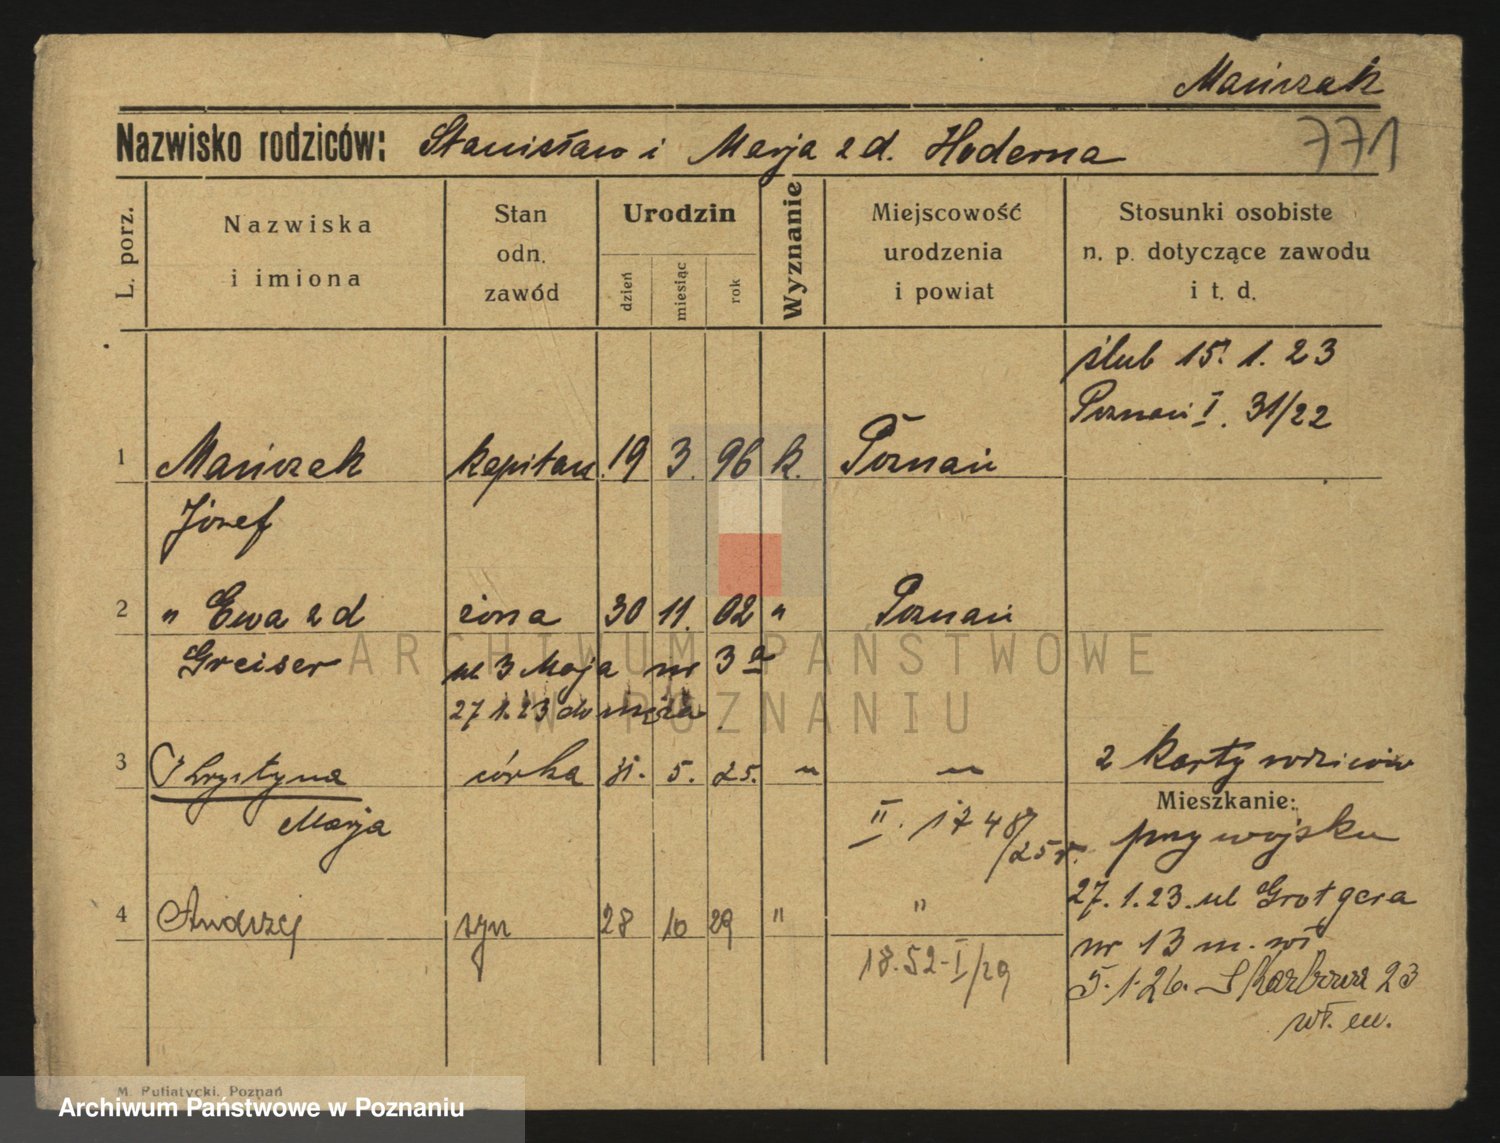 Mańczak
Nazwisko rodziców: Stanisław i Marja z d. Hoderna
771
L. porz.
Nazwiska
i imiona
Stan
odn.
zawód
Urodzin
dzień
miesiąc
rok
Wyznanie
Miejscowość
urodzenia
i powiat
Stosunki osobiste
n. p. dotyczące zawodu
i t. d.
ślub 15. 1. 23
Poznań I. 31/22
1 Mańczak kapitan 19 3. 96 k. Poznań
Józef
2 " Ewa z d żona 30 11. 02 " Poznań
Greiser ul 3 Maja nr 3a
27 1. 23 do męża
3 Chrystyna córka 31. 5. 25. " "
Marja
II. 1748/25 r.
2 karty rodziców
Mieszkanie:
przy wojsku
27. 1. 23. ul Grotgera
nr 13 m. wł
5. 1. 26. Skarbowa 23
wł. m.
4 Andrzej syn 28 10 29 " "
1852-I/29
M. Putiatycki, Poznań
ARCHIWUM PAŃSTWOWE
W POZNANIU
Archiwum Państwowe w Poznaniu